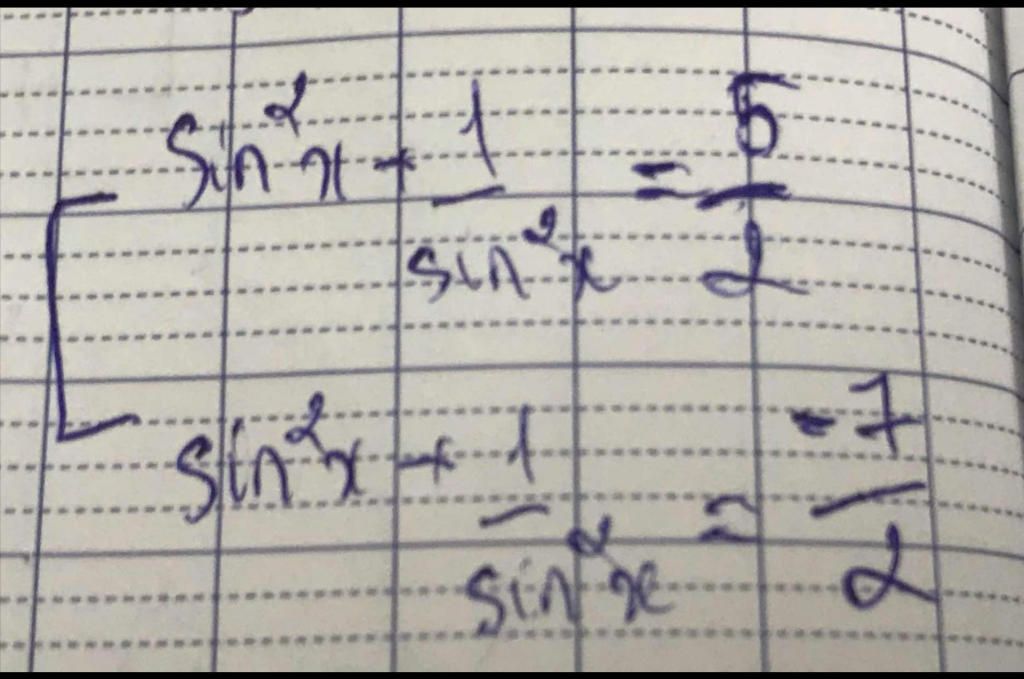 sin²x + 1/sin²x = 5/2
sin²x + 1/sin²x = -7/2